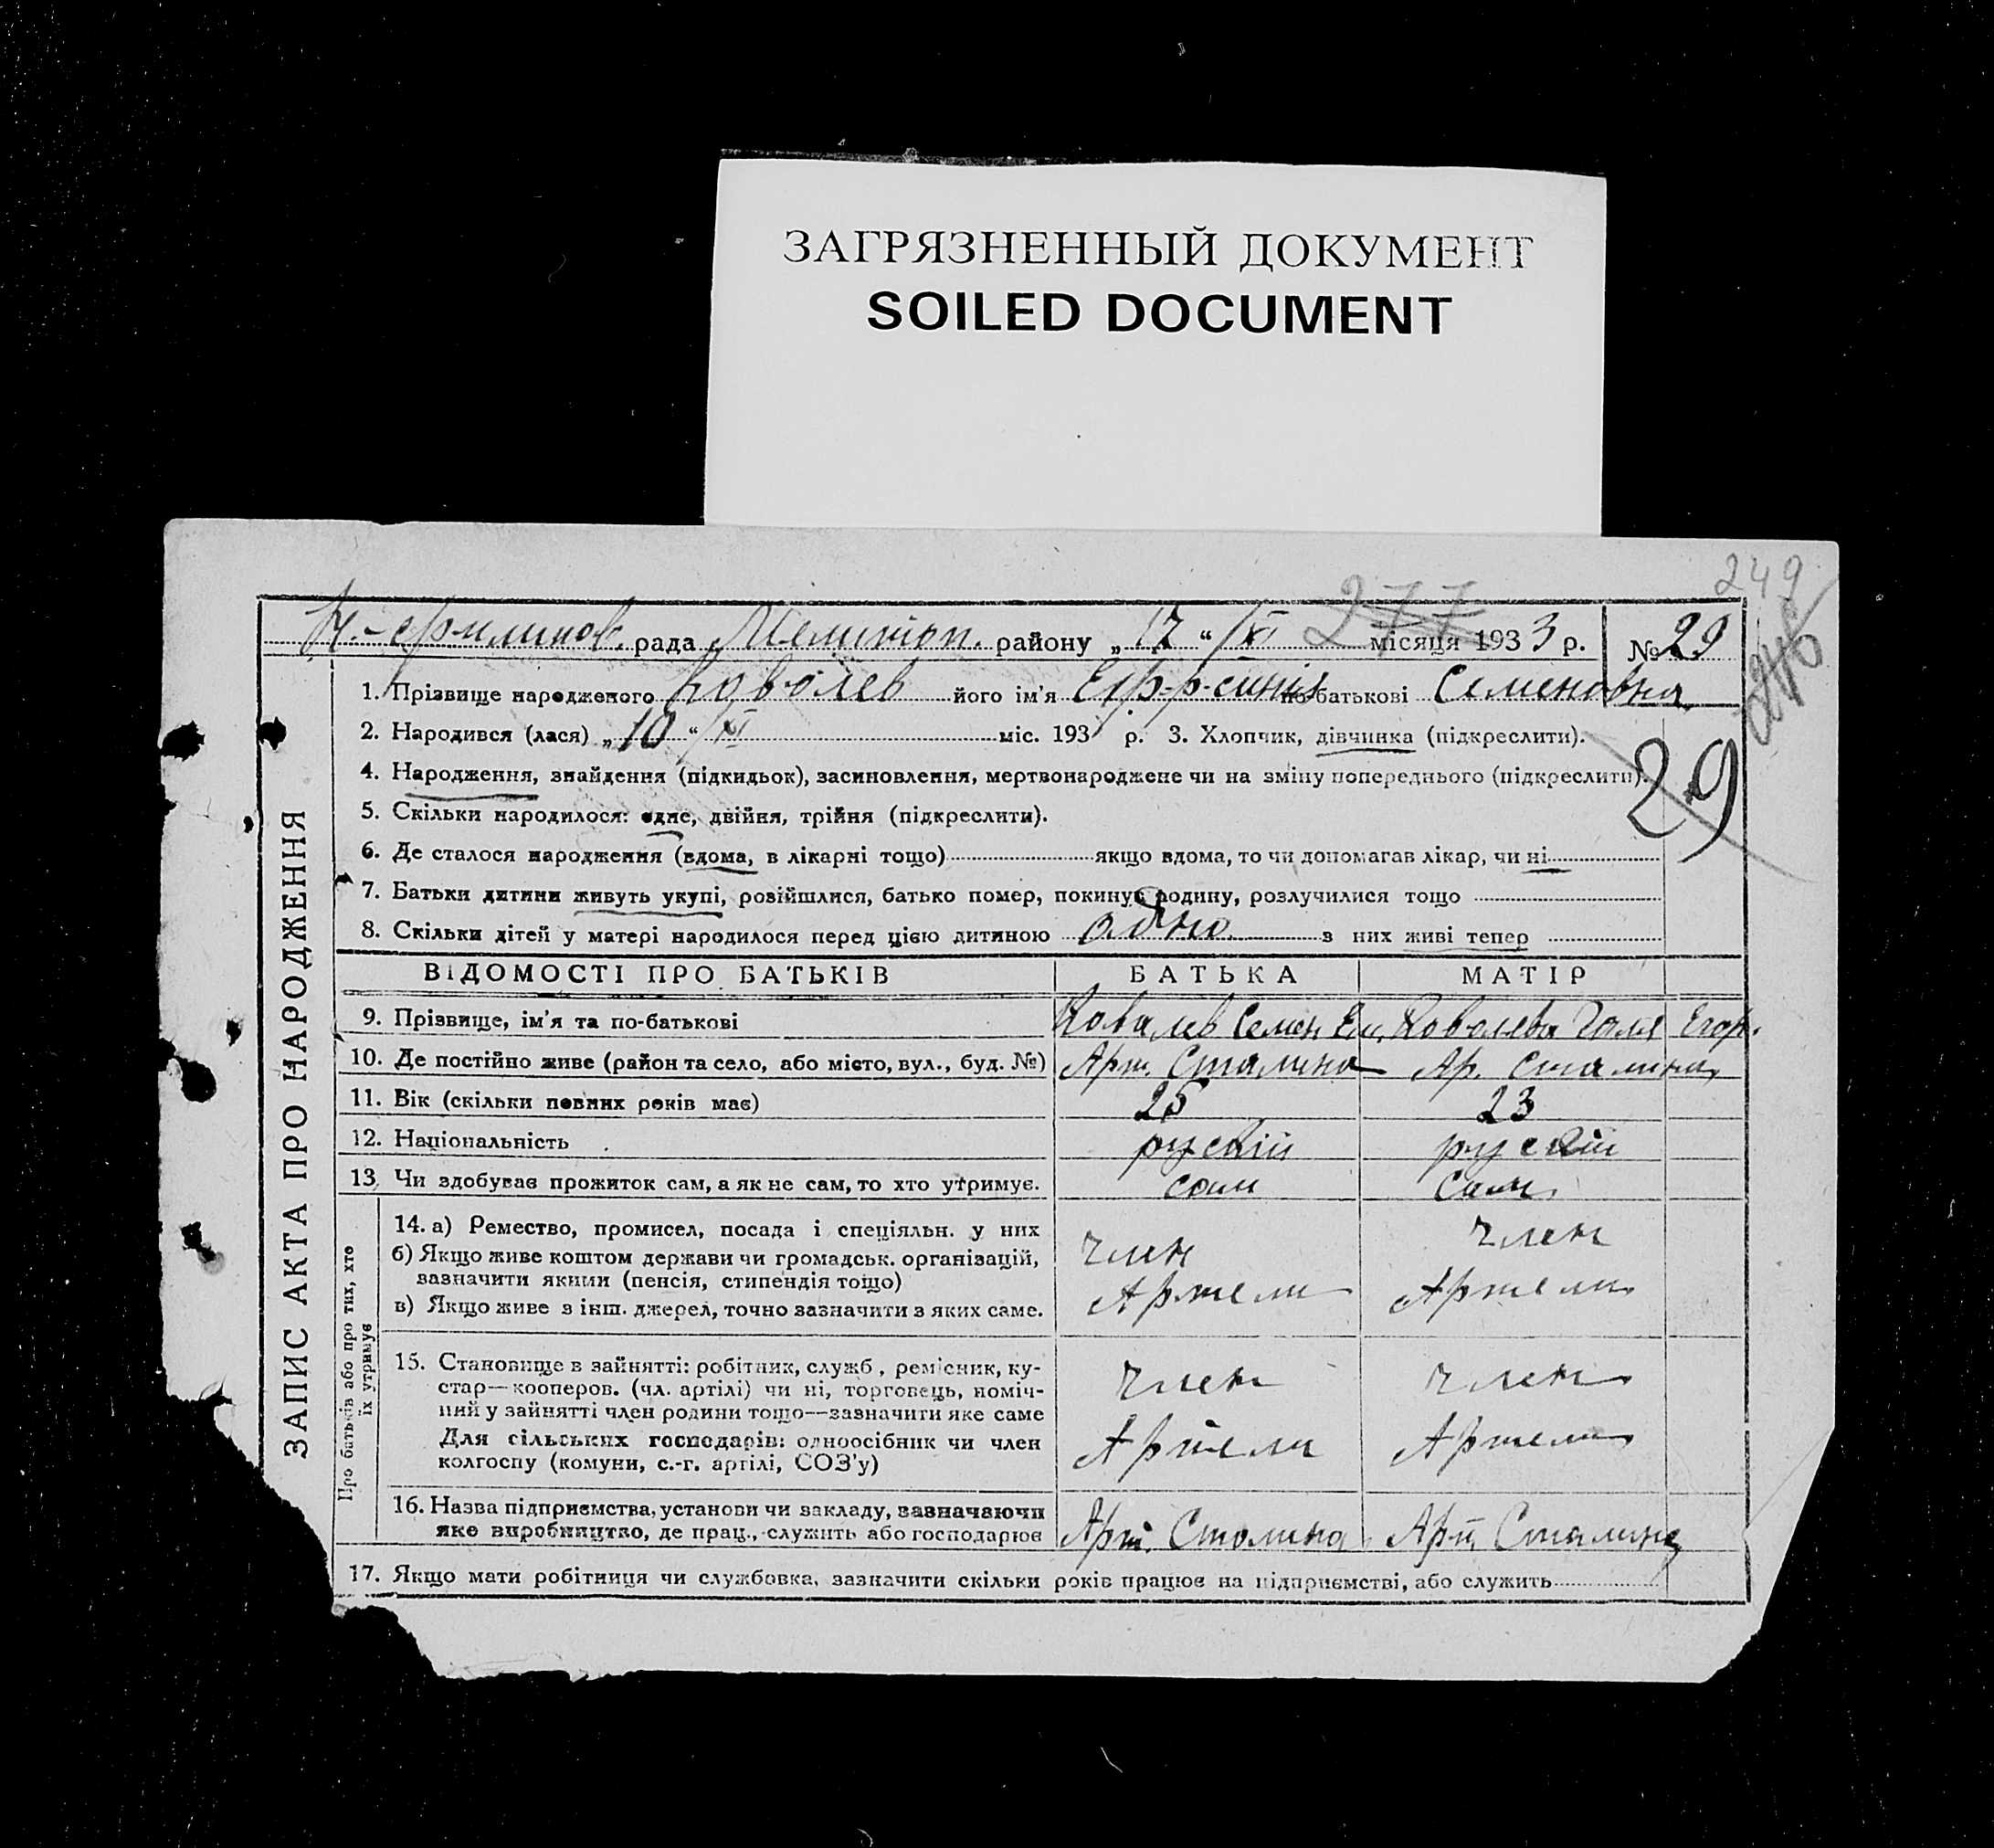 ЗАГРЯЗНЕННЫЙ ДОКУМЕНТ
SOILED DOCUMENT
249
277
рада Мелитоп. району „17 “ XI місяця 1933 р. № 29
1. Прізвище народженого Ковалев його ім'я по батькові Семеновна
2. Народився (лася) „10 “ XI міс. 193 р. 3. Хлопчик, дівчинка (підкреслити).
29
4. Народження, знайдення (підкидьок), засиновлення, мертвонароджене чи на зміну попереднього (підкреслити).
5. Скільки народилося: одне, двійня, трійня (підкреслити).
6. Де сталося народження (вдома, в лікарні тощо) якщо вдома, то чи допомагав лікар, чи ні
7. Батьки дитини живуть укупі, розійшлися, батько помер, покинув родину, розлучилися тощо
8. Скільки дітей у матері народилося перед цією дитиною одно з них живі тепер
ЗАПИС АКТА ПРО НАРОДЖЕННЯ
ВІДОМОСТІ ПРО БАТЬКІВ БАТЬКА МАТІР
9. Прізвище, ім'я та по-батькові Ковалев Семен Ем. Ковалева Галя Егор.
10. Де постійно живе (район та село, або місто, вул., буд. №) Арт. Сталина Ар. Сталина
11. Вік (скільки повних років має) 25 23
12. Національність руский руский
13. Чи здобуває прожиток сам, а як не сам, то хто утримує. сам сам
Про батьків або про тих, хто
їх утримує
14. а) Ремество, промисел, посада і спеціяльн. у них
б) Якщо живе коштом держави чи громадськ. організацій,
зазначити якими (пенсія, стипендія тощо)
в) Якщо живе з інш. джерел, точно зазначити з яких саме.
член Артели
член Артели
15. Становище в зайнятті: робітник, служб., ремісник, ку-
стар—кооперов. (чл. артілі) чи ні, торговець, поміч-
ний у зайнятті член родини тощо—зазначити яке саме
Для сільських господарів: одноосібник чи член
колгоспу (комуни, с.-г. артілі, СОЗ'у)
член Артели
член Артели
16. Назва підприємства, установи чи закладу, зазначаючи
яке виробництво, де прац., служить або господарює
Арт. Сталина Арт. Сталина
17. Якщо мати робітниця чи службовка, зазначити скільки років працює на підприємстві, або служить